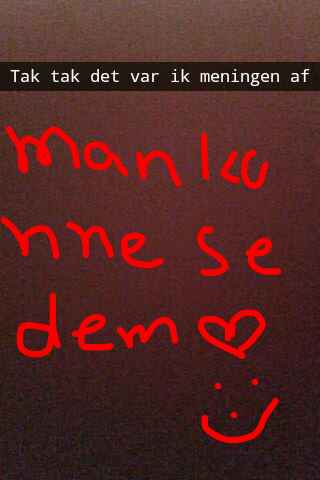 Tak tak det var ik meningen af
man ku
nne se
dem ♡